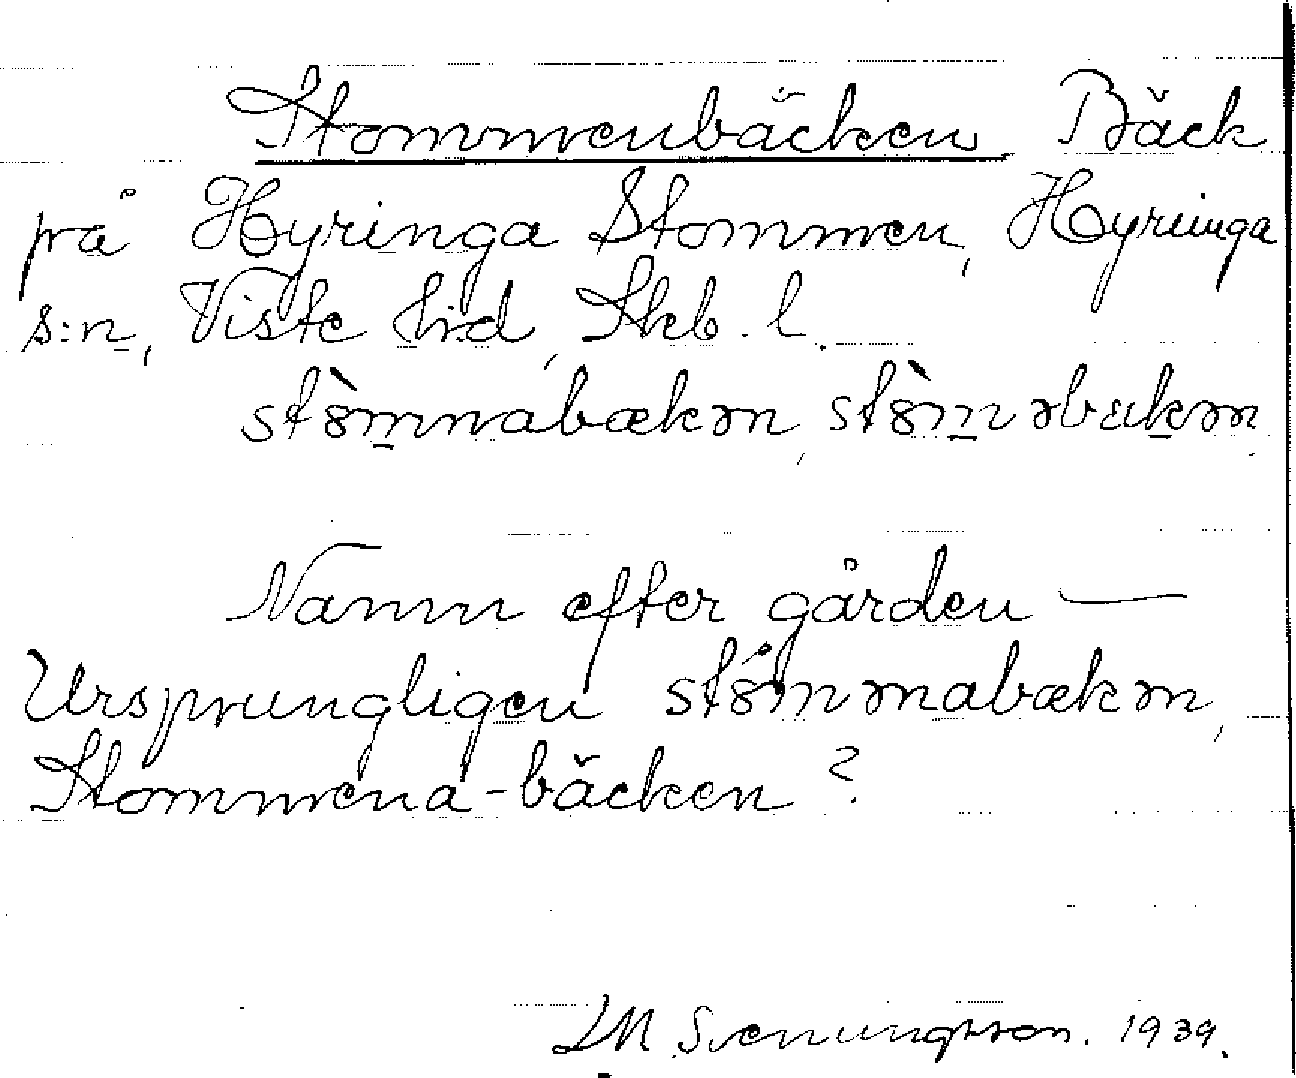 Stommenbäcken Bäck
på Hyringa Stommen, Hyringa
s:n, Viste hrd, Skb. l.
stòmnabækən, stòməbækən
Namn efter gården —
Ursprungligen stómənabækən,
Stommena-bäcken?
LM Svenungsson. 1939.